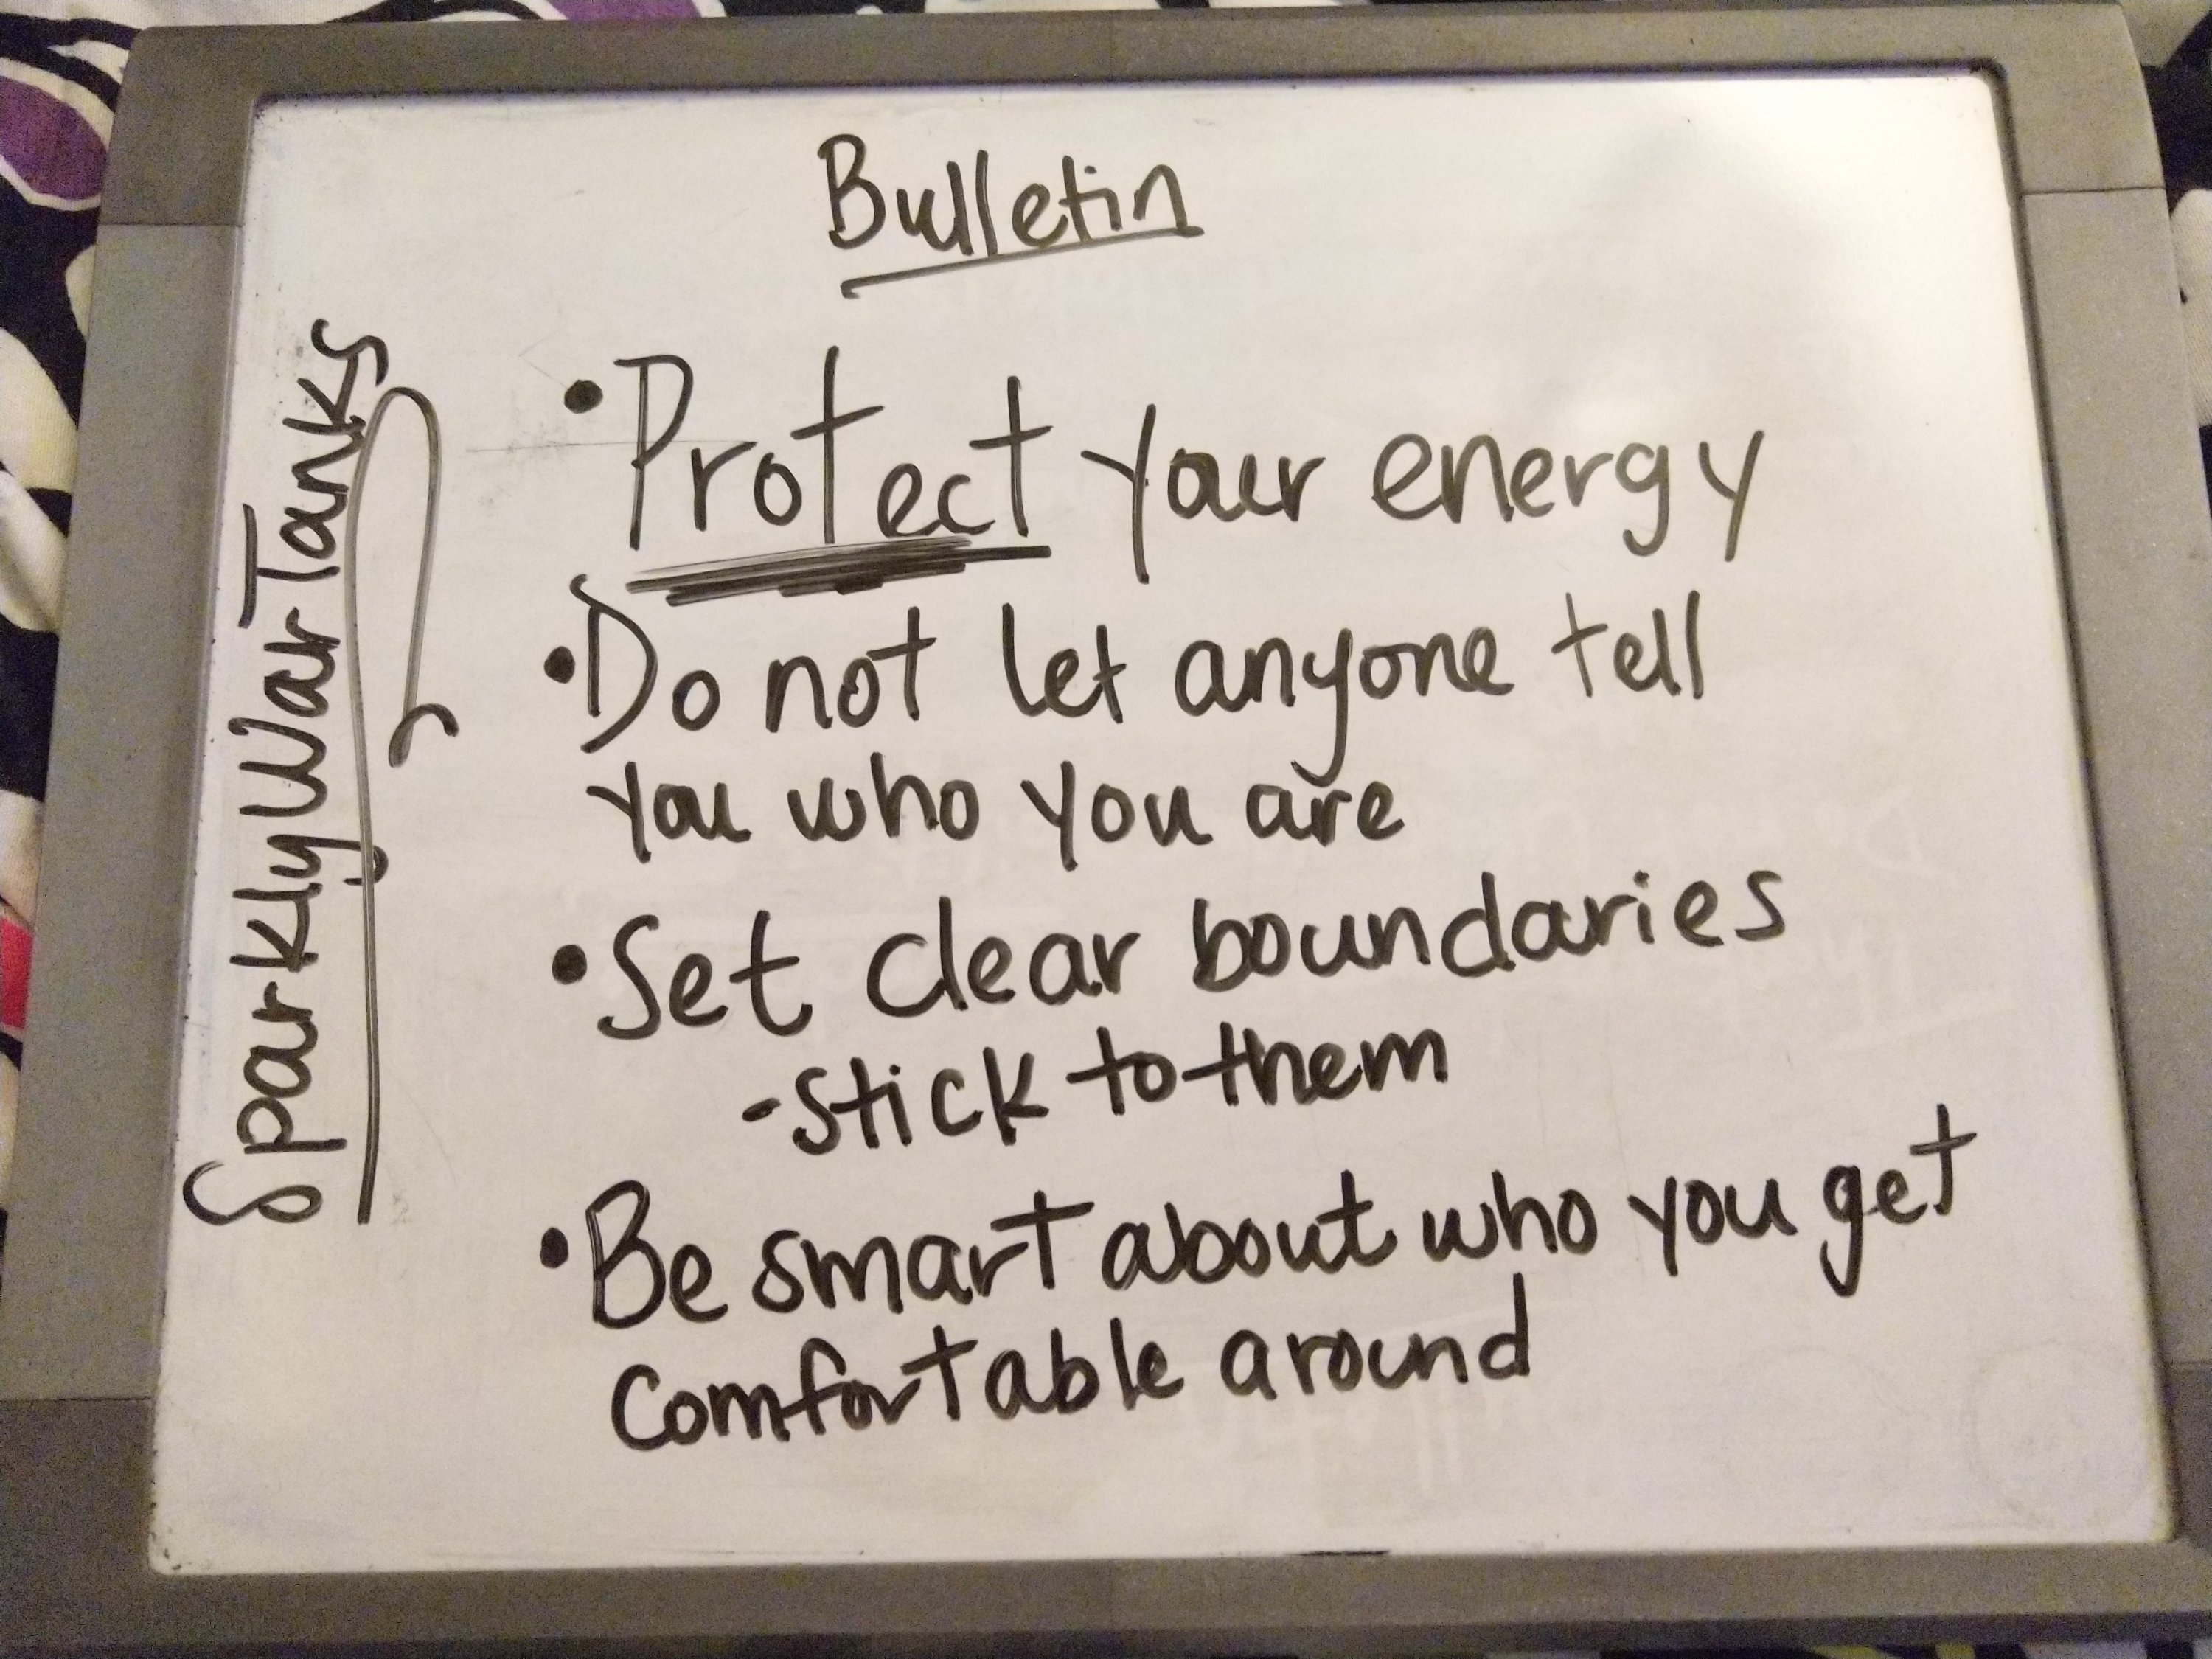 Bulletin
• Protect your energy
• Do not let anyone tell
you who you are
• Set clear boundaries
- stick to them
• Be smart about who you get
comfortable around
SparklyWarTanks